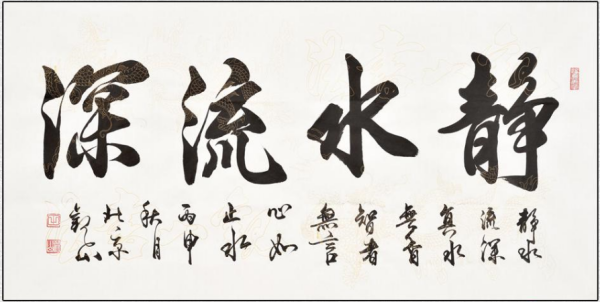 静水流深
静水
流深
真水
無香
智者
無言
心如
止水
丙申
秋月
北京